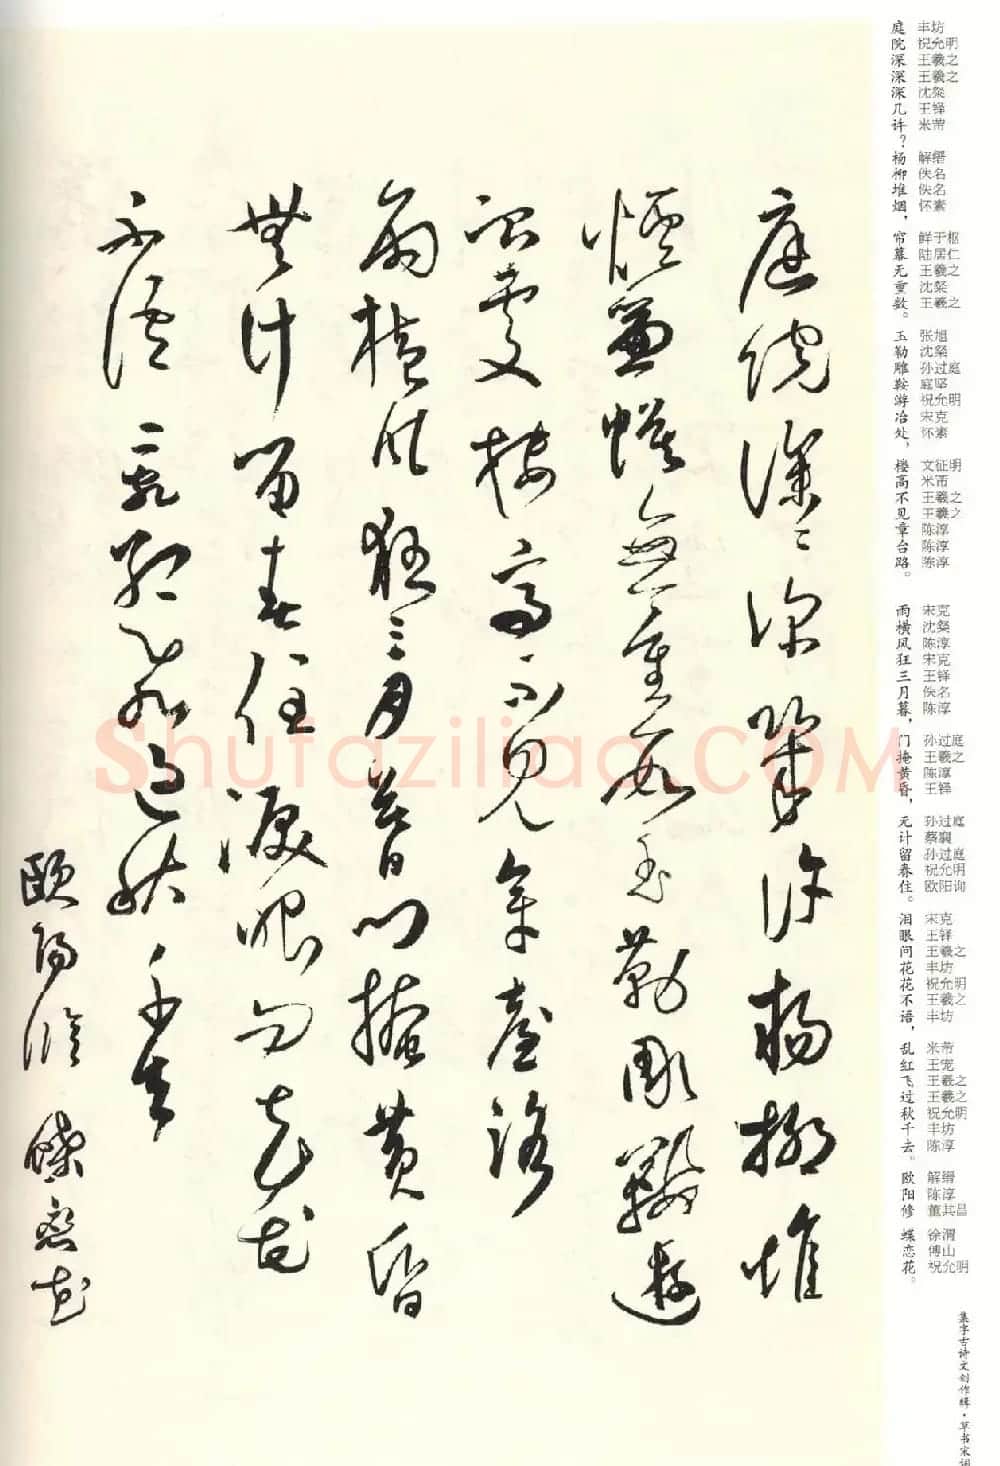 庭院深深深幾許楊柳堆
煙簾幕無重數玉勒雕鞍遊
冶處樓高不見章臺路
雨橫風狂三月暮門掩黃昏
無計留春住淚眼問花花
不語亂紅飛過秋千去
歐陽修 蝶戀花
庭 丰坊
院 祝允明
深 王羲之
深 王羲之
深 沈粲
几 王铎
许？ 米芾
杨 解缙
柳 佚名
堆 佚名
烟， 怀素
帘 鲜于枢
幕 陆居仁
无 王羲之
重 沈粲
数。 王羲之
玉 张旭
勒 沈粲
雕 孙过庭
鞍 庭坚
游 祝允明
冶 宋克
处， 怀素
楼 文征明
高 米芾
不 王羲之
见 王羲之
章 陈淳
台 陈淳
路。 陈淳
雨 宋克
横 沈粲
风 陈淳
狂 宋克
三 王铎
月 佚名
暮， 陈淳
门 孙过庭
掩 王羲之
黄 陈淳
昏， 王铎
无 孙过庭
计 蔡襄
留 孙过庭
春 祝允明
住。 欧阳询
泪 宋克
眼 王铎
问 王羲之
花 丰坊
花 祝允明
不 王羲之
语， 丰坊
乱 米芾
红 王宠
飞 王羲之
过 王羲之
秋 祝允明
千 丰坊
去。 陈淳
欧 解缙
阳 陈淳
修 董其昌
蝶 徐渭
恋 傅山
花。 祝允明
集字古诗文创作辑·草书宋词
Shufaziliao.COM